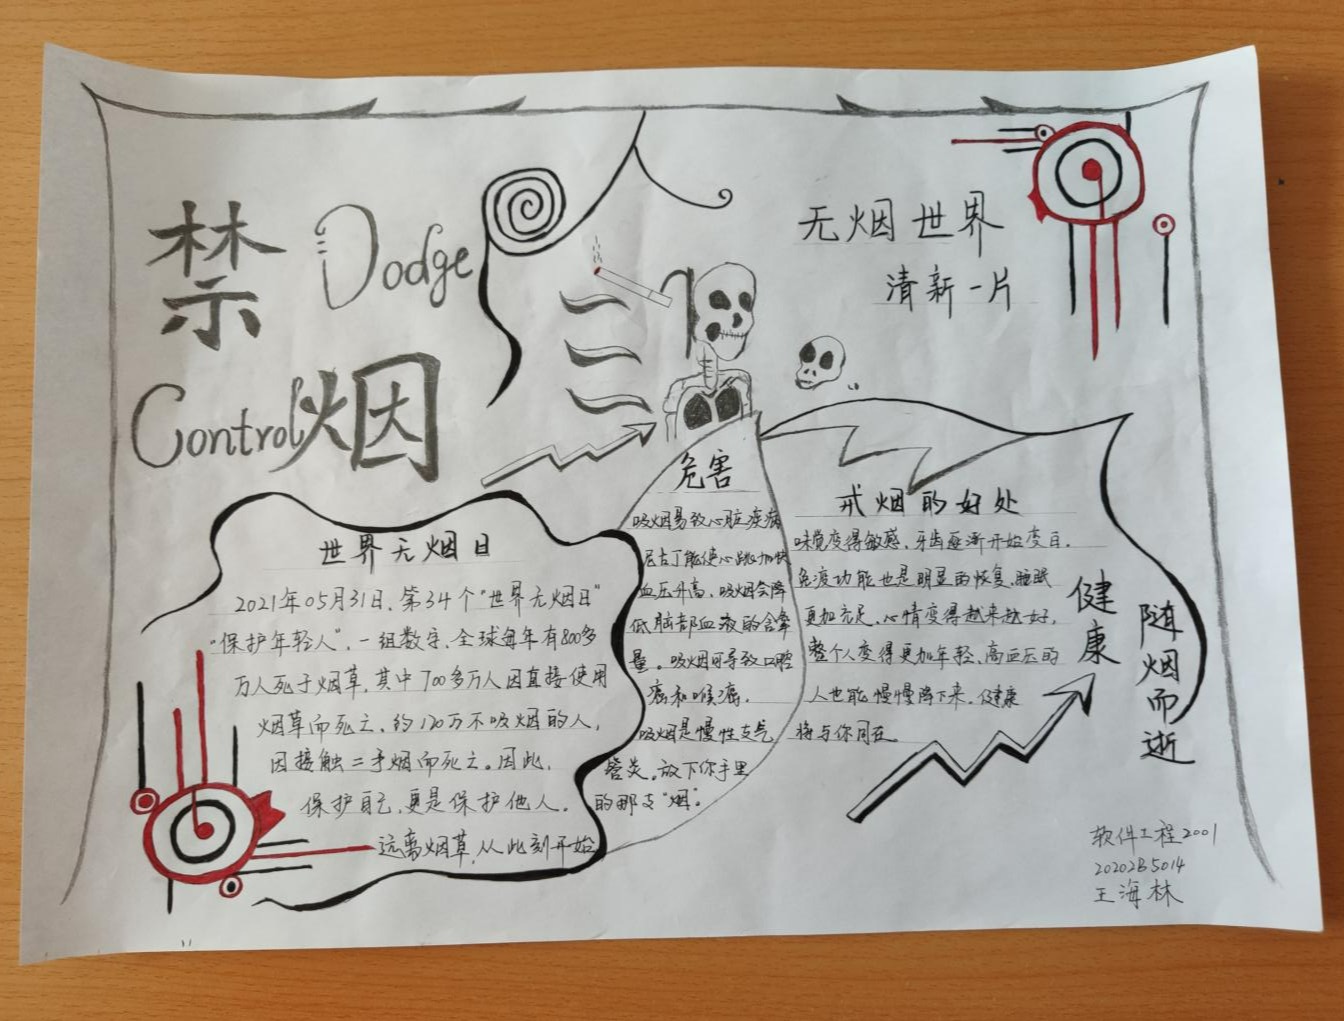 禁
Dodge
Control烟
无烟世界
清新一片
世界无烟日
2021年05月31日,第34个"世界无烟日"
"保护年轻人",一组数字,全球每年有800多
万人死于烟草,其中700多万人因直接使用
烟草而死亡,约120万不吸烟的人,
因接触二手烟而死亡。因此,
保护自己,更是保护他人。
远离烟草,从此刻开始
危害
吸烟易致心脏疾病
尼古丁能使心跳加快
血压升高、吸烟会降
低脑部血液的含氧
量。吸烟可导致口腔
癌和喉癌.
吸烟是慢性支气
管炎。放下你手里
的那支"烟"。
戒烟的好处
味觉变得敏感、牙齿逐渐开始变白.
免疫功能也是明显的恢复、睡眠
更加充足、心情变得越来越好,
整个人变得更加年轻、高血压的
人也能慢慢降下来。健康
将与你同在。
健康
随烟而逝
软件工程2001
20202B5014
王海林